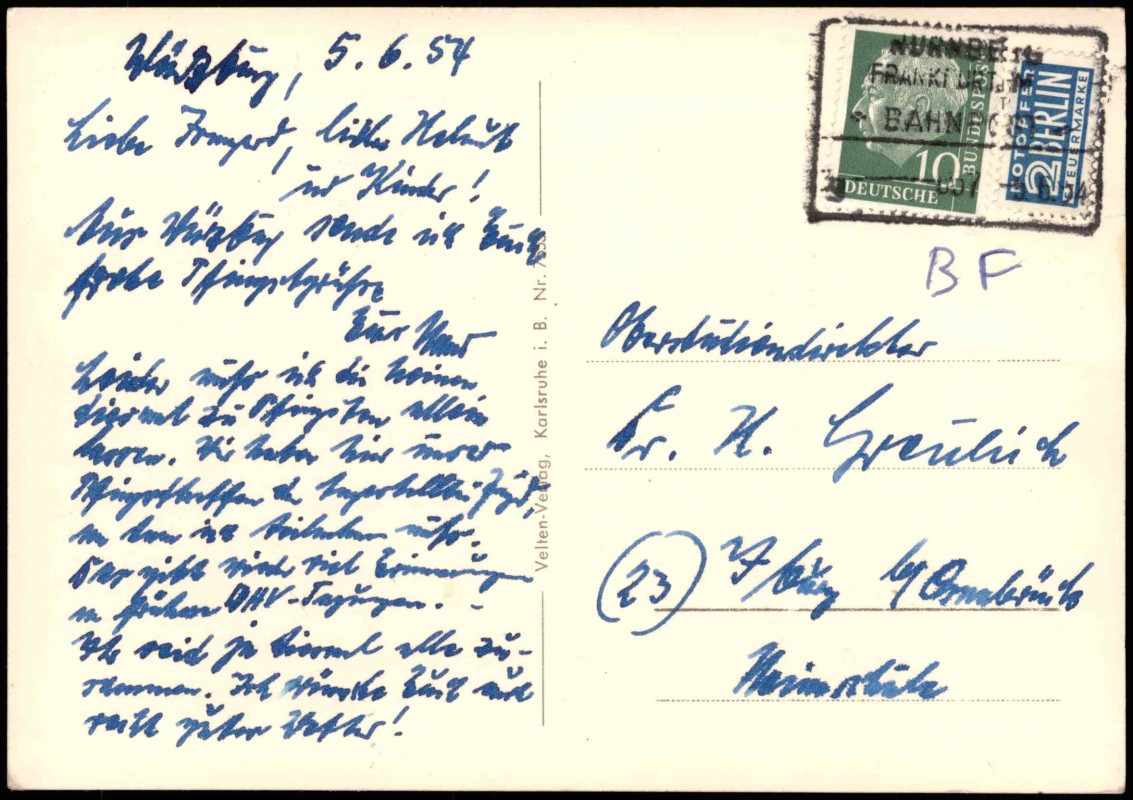 Würzburg, 5.6.54
Liebe Irmgard, lieber Helmut
und Kinder!
Aus Würzburg sende ich Euch
frohe Pfingstgrüße
Euer
Leider muß ich die Meinen
diesmal zu Pfingsten allein
lassen. Wir haben hier unser
Pfingsttreffen der
an dem ich teilnehmen muß.
Das gibt wieder viel Erinnerungen
an frühere DHV-Tagungen. -
Ihr seid ja diesmal alle zu-
sammen. Ich wünsche Euch nur
recht gutes Wetter!
Velten-Verlag, Karlsruhe i. B. Nr.
NÜRNBERG
FRANKFURT/M
BAHNPOST
5.6.54
10
DEUTSCHE
BUNDESPOST
NOTOPFER
2 BERLIN
STEUERMARKE
BF
Oberstudiendirektor
Dr. H. Greulich
(23) Iburg b/Osnabrück
Heimschule